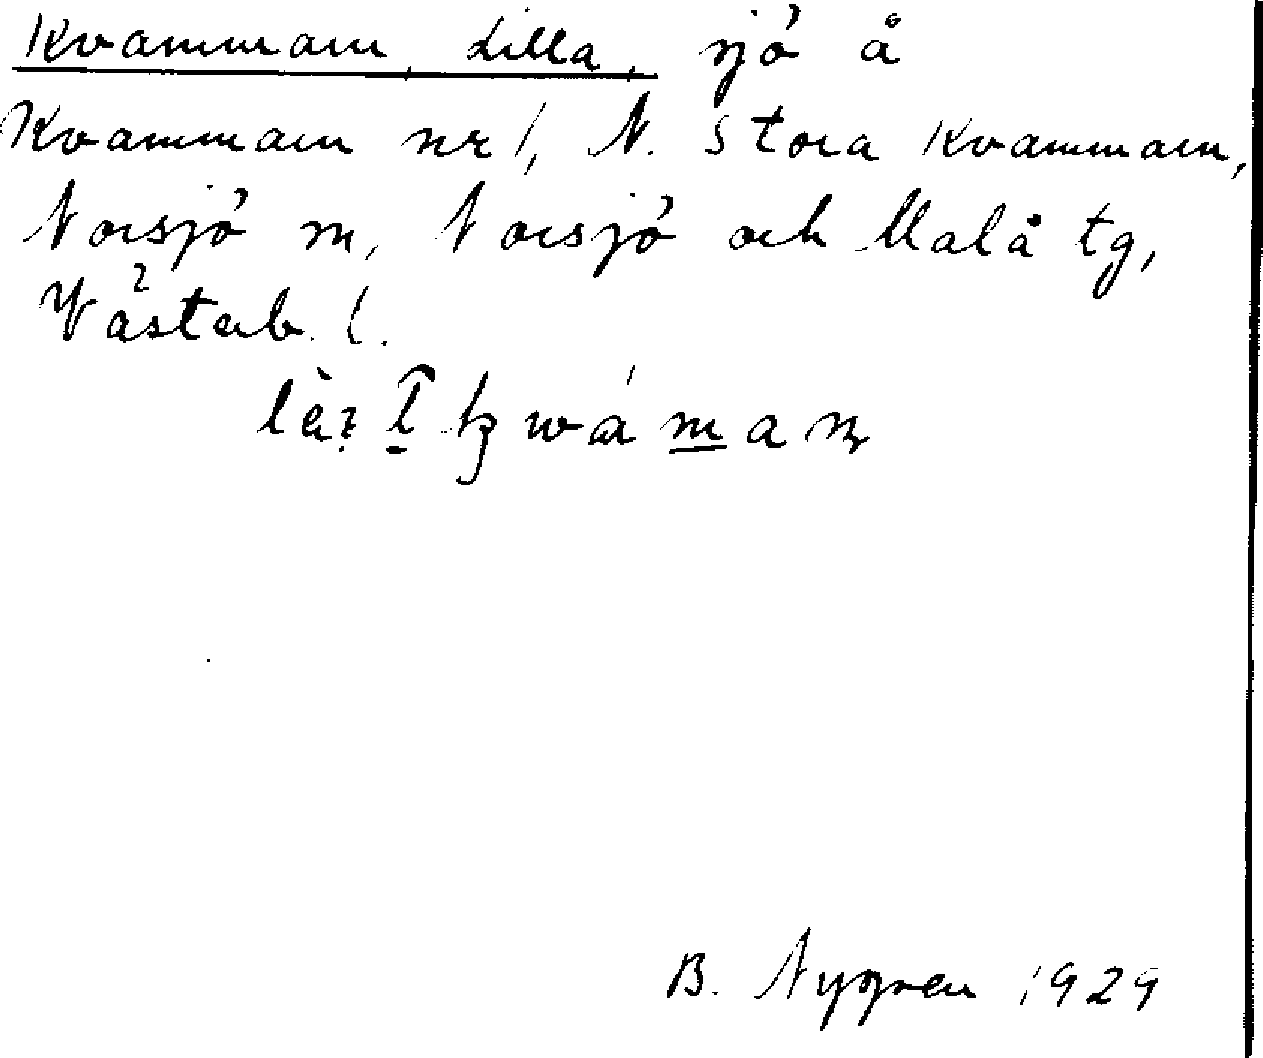 Kvammarn, Lilla, sjö å
Kvammarn nr 1, N. Stora Kvammarn,
Norsjö sn, Norsjö och Malå tg,
Västerb. l.
B. Nygren 1929